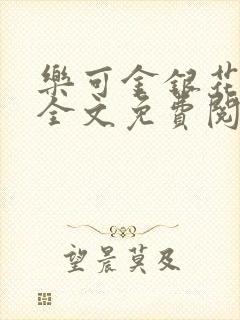 樂可金銀花
全文免費閱
望晨莫及